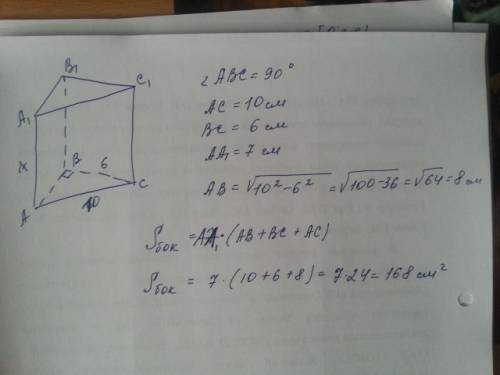 B₁
C₁
A₁
B
6
C
A
10
∠ABC = 90°
AC = 10 см
BC = 6 см
AA₁ = 7 см
AB = √10² - 6² = √100 - 36 = √64 = 8 см
Sбок = AA₁ · (AB + BC + AC)
Sбок = 7 · (10 + 6 + 8) = 7 · 24 = 168 см²